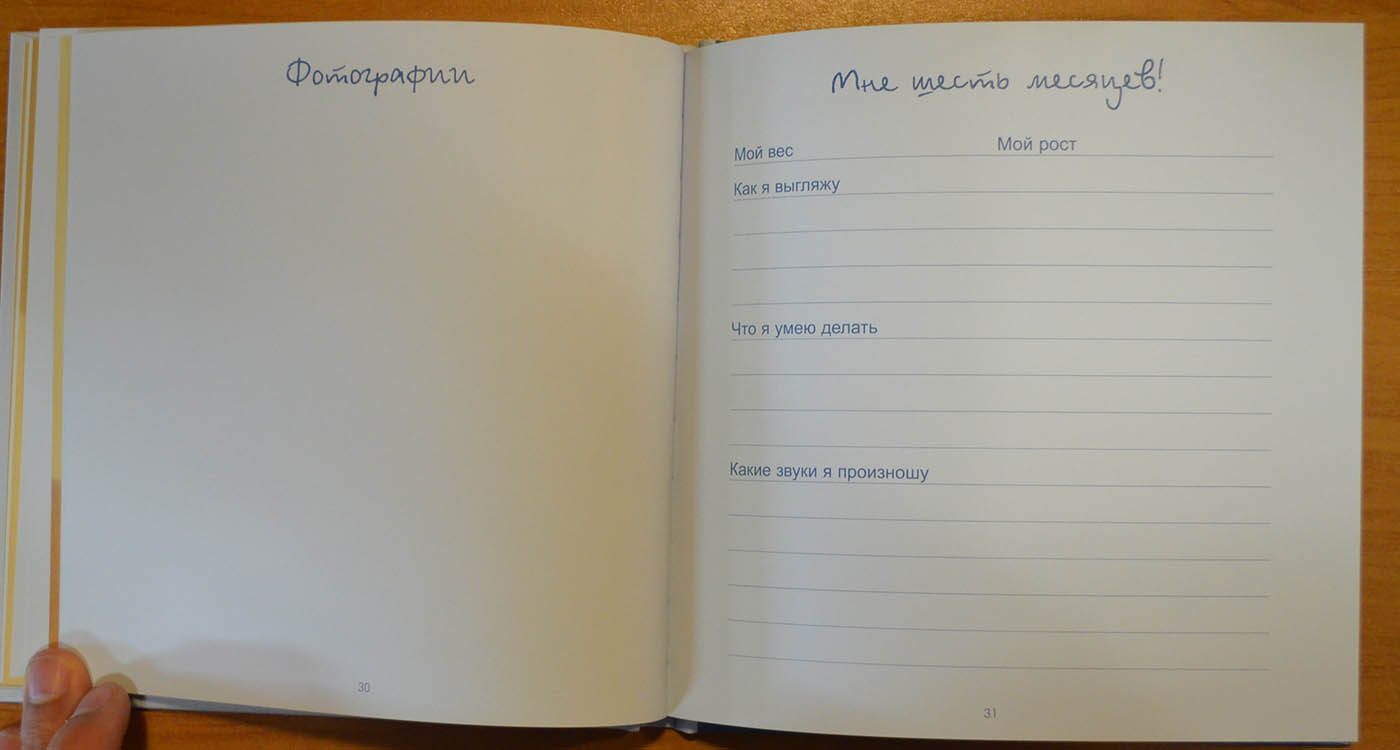 Фотографии
30
Мне шесть месяцев!
Мой вес Мой рост
Как я выгляжу
Что я умею делать
Какие звуки я произношу
31